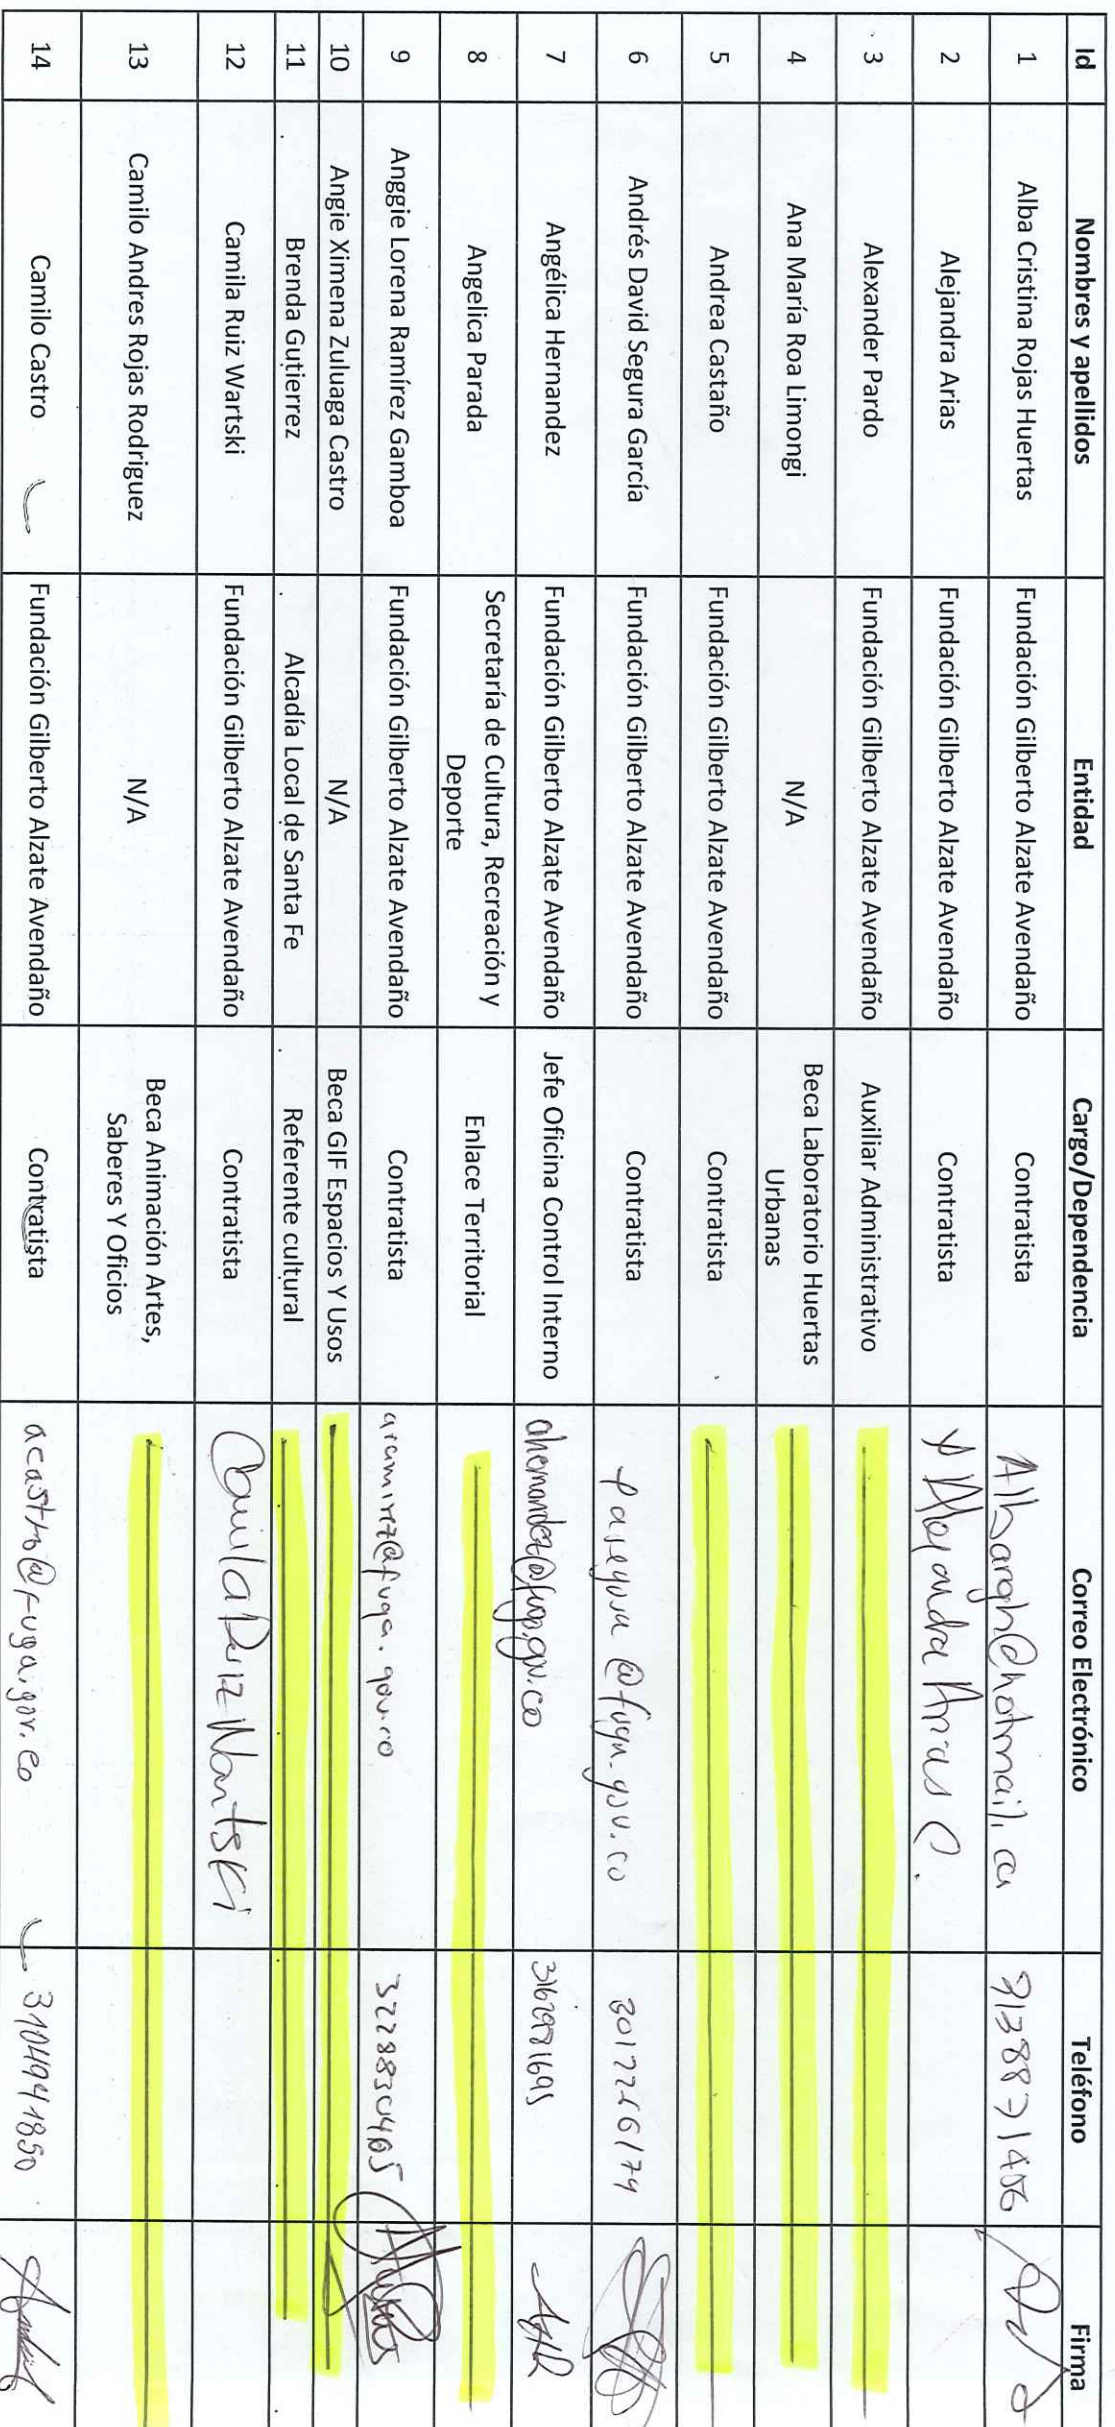 Id Nombres y apellidos Entidad Cargo/Dependencia Correo Electrónico Teléfono Firma
1 Alba Cristina Rojas Huertas Fundación Gilberto Alzate Avendaño Contratista
2 Alejandra Arias Fundación Gilberto Alzate Avendaño Contratista Alejandra Arias C.
3 Alexander Pardo Fundación Gilberto Alzate Avendaño Auxiliar Administrativo
4 Ana María Roa Limongi N/A Beca Laboratorio Huertas
Urbanas
5 Andrea Castaño Fundación Gilberto Alzate Avendaño Contratista
6 Andrés David Segura García Fundación Gilberto Alzate Avendaño Contratista
7 Angélica Hernandez Fundación Gilberto Alzate Avendaño Jefe Oficina Control Interno ahernandez@fuga.gov.co 3162981695
8 Angelica Parada Secretaría de Cultura, Recreación y
Deporte Enlace Territorial
9 Anggie Lorena Ramírez Gamboa Fundación Gilberto Alzate Avendaño Contratista aramirez@fuga.gov.co
10 Angie Ximena Zuluaga Castro N/A Beca GIF Espacios Y Usos
11 Brenda Gutierrez Alcadía Local de Santa Fe Referente cultural
12 Camila Ruiz Wartski Fundación Gilberto Alzate Avendaño Contratista Camila Ruiz Wartski
13 Camilo Andres Rojas Rodriguez N/A Beca Animación Artes,
Saberes Y Oficios
14 Camilo Castro Fundación Gilberto Alzate Avendaño Contratista acastro@fuga.gov.co 3104941850